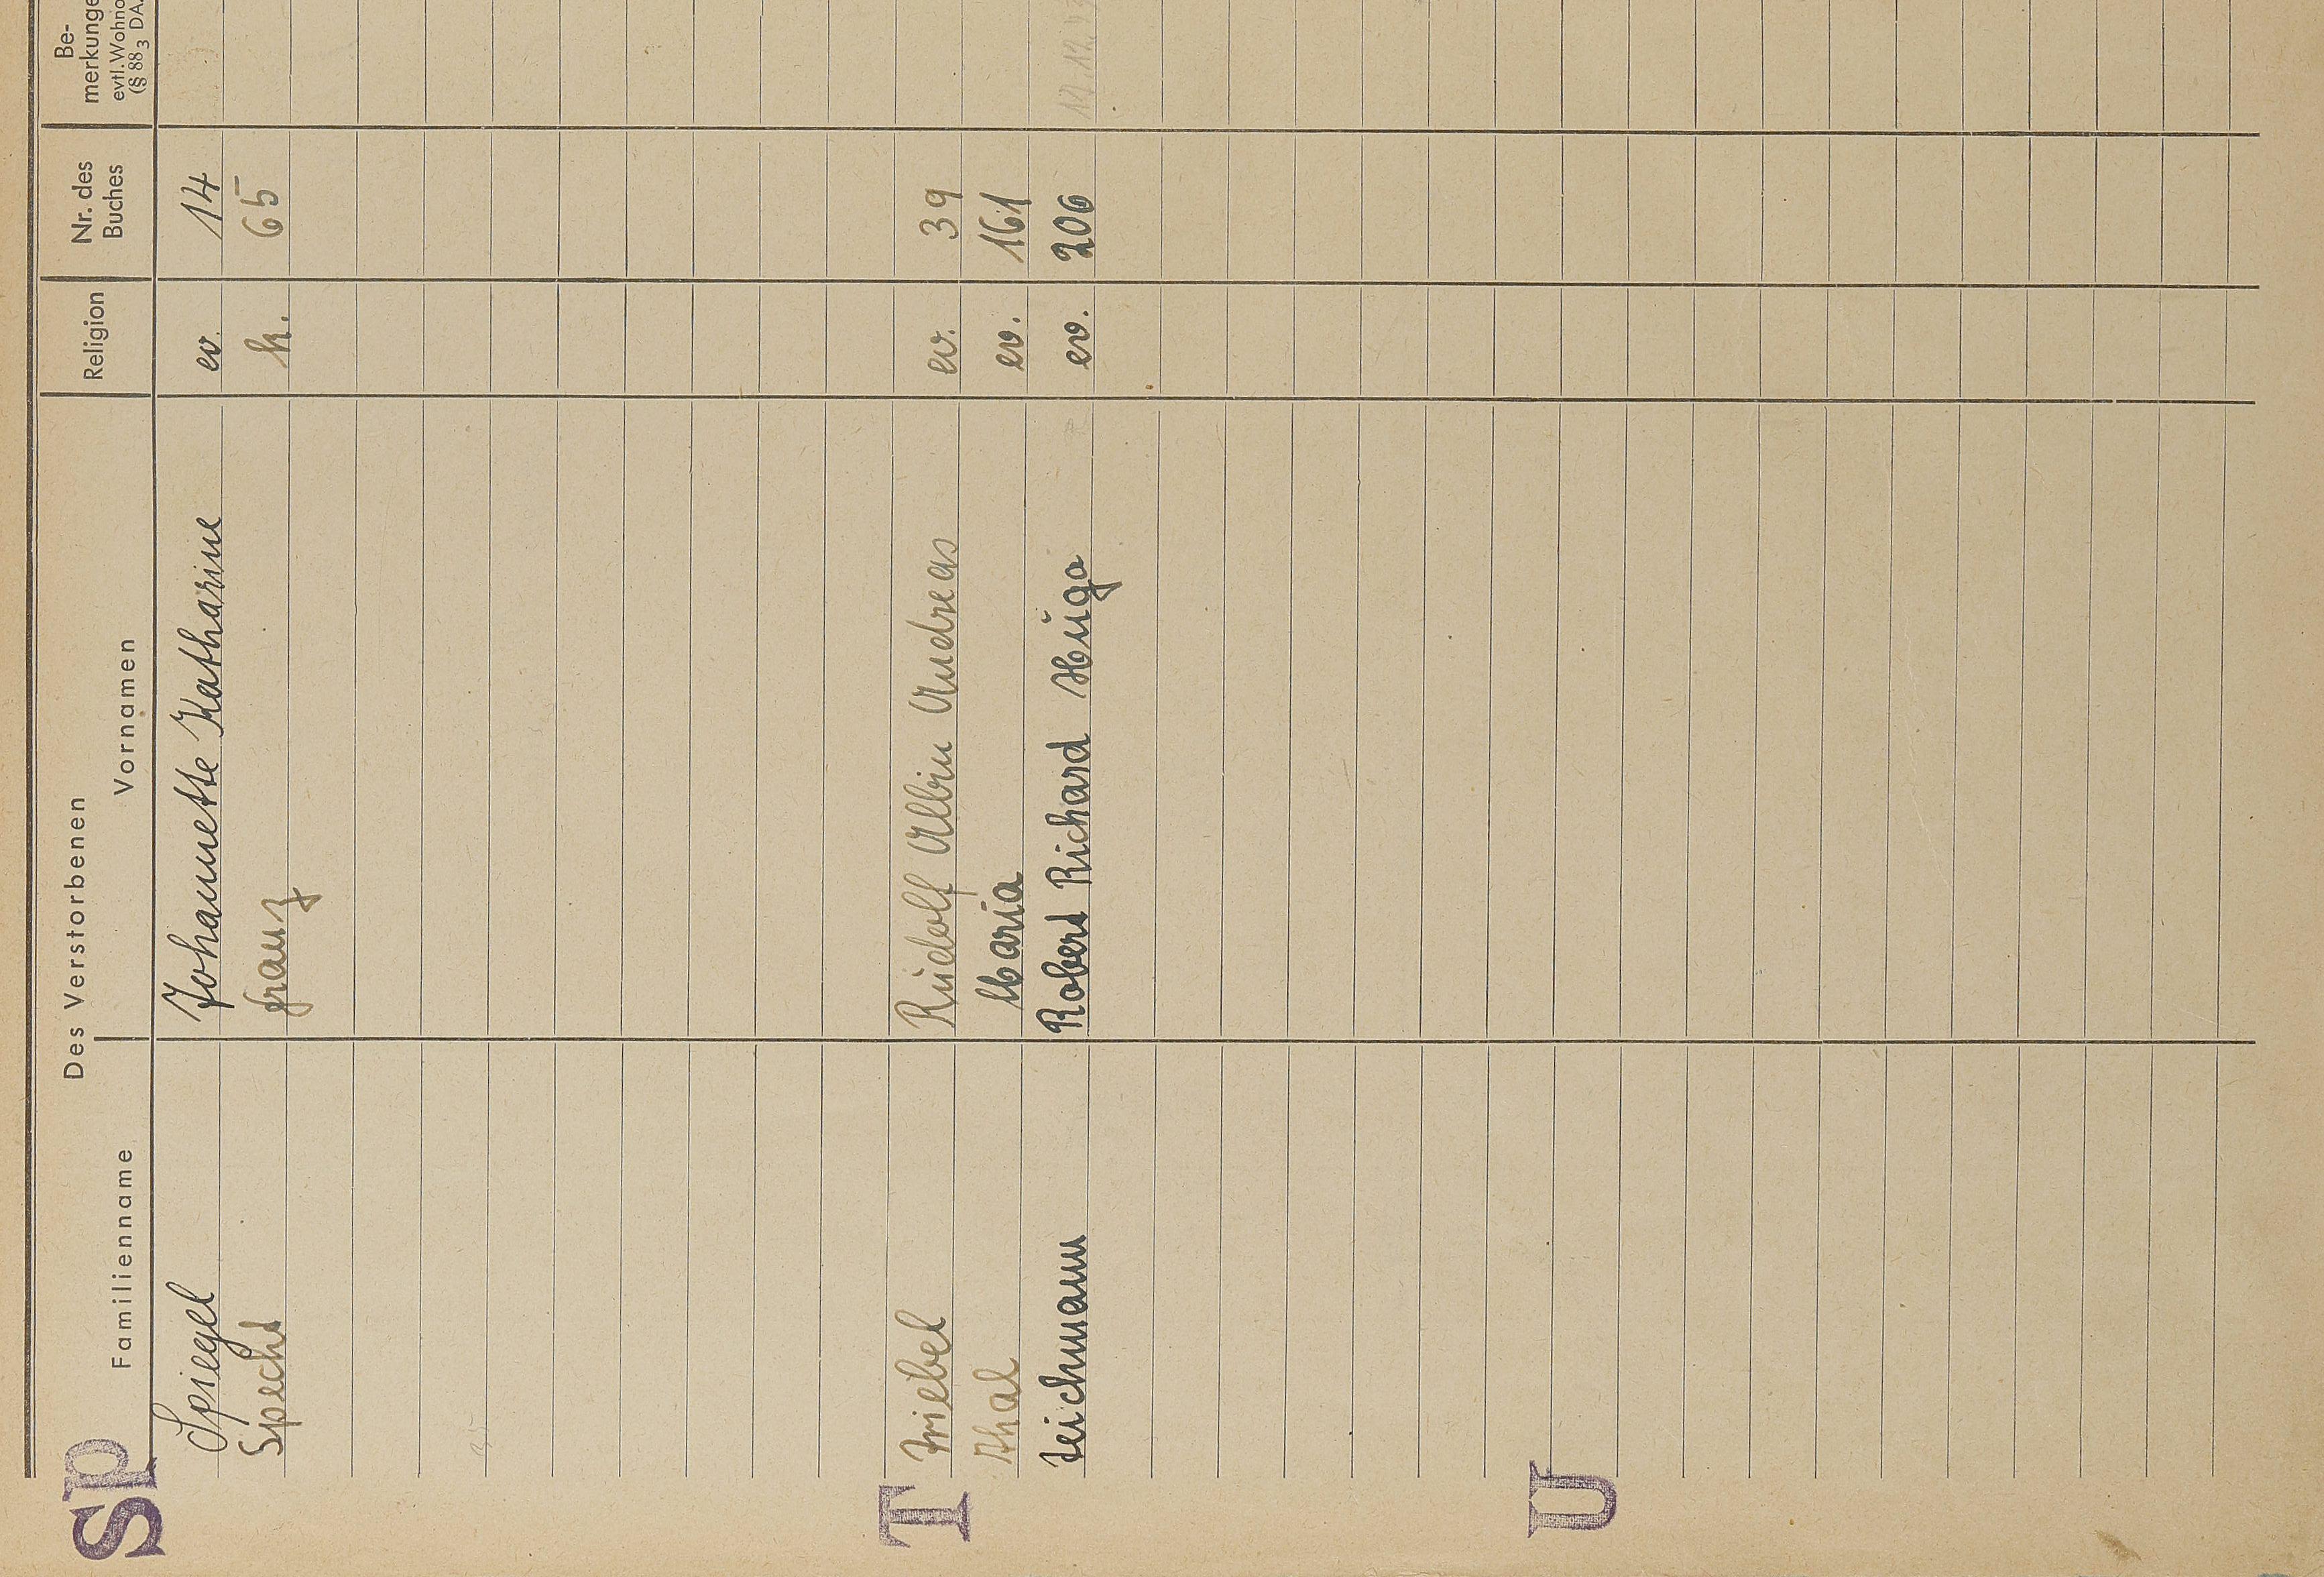 Des Verstorbenen
Familienname Vornamen Religion Nr. des Buches Be-
merkunge
evtl. Wohno
(§ 88₃ DA.
Sp
Spiegel Johannette Katharine ev. 14
Specht Franz k. 65
T
Triebel Rudolf Albin Andreas ev. 39
Thal Maria ev. 161
Teichmann Robert Richard Hugo ev. 206
U